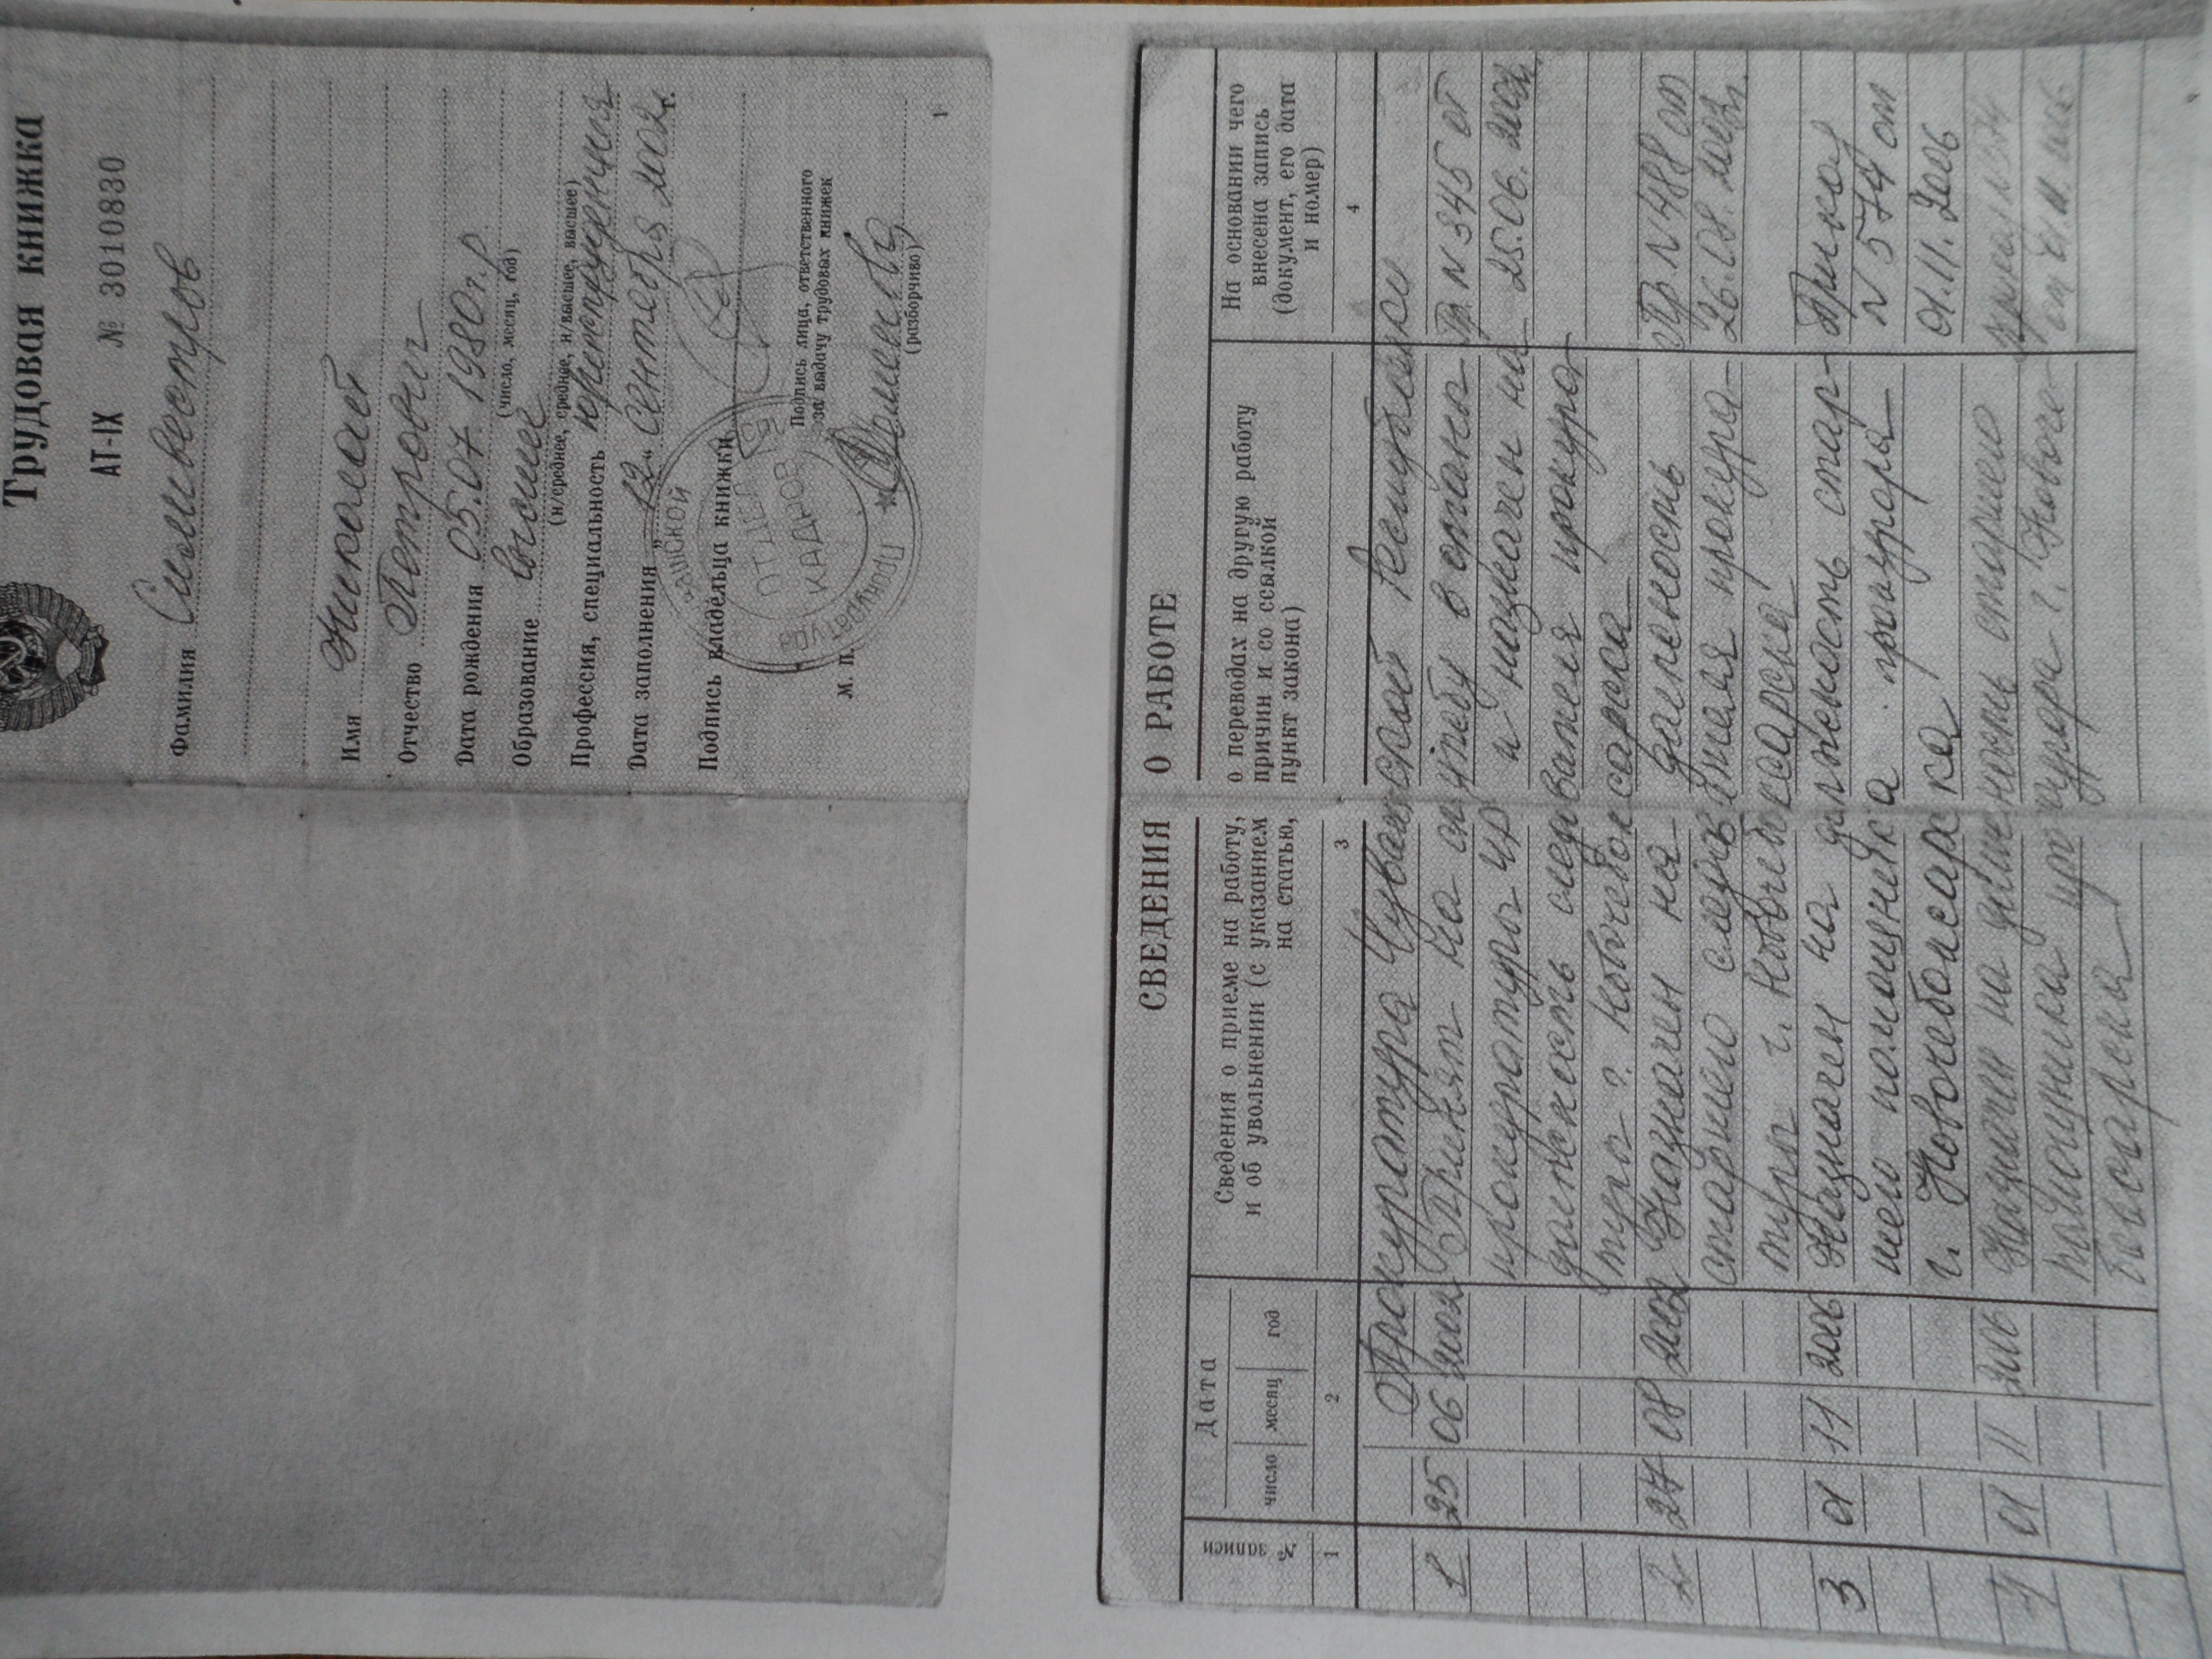 Трудовая книжка
АТ-IX № 3010830
Фамилия Сильвестров
Имя Николай
Отчество Петрович
Дата рождения 05.07.1980г.р
(число, месяц, год)
Образование высшее
(н/среднее, среднее, н/высшее, высшее)
Профессия, специальность юриспруденция
Дата заполнения „12“ Сентября 2002г.
Подпись владельца книжки
Подпись лица, ответственного
за выдачу трудовых книжек
М. П.
(разборчиво)
ОТДЕЛ
КАДРОВ
1
СВЕДЕНИЯ О РАБОТЕ
№ записи
Дата
число месяц год
Сведения о приеме на работу, о переводах на другую работу
и об увольнении (с указанием причин и со ссылкой
на статью, пункт закона)
На основании чего
внесена запись
(документ, его дата
и номер)
1 2 3 4
Прокуратура Чувашской Республики
1 25 06 2002 Принят на службу в органы Пр. N 345 от
прокуратуры ЧР и назначен на 25.06.2002г.
должность следователя прокура-
туры г. Новочебоксарска
2 27 08 2002 Назначен на должность Пр N 488 от
старшего следователя прокура- 26.08.2002г.
туры г. Новочебоксарска
3 01 11 2006 Назначен на должность стар- Приказ
шего помощника прокурора N 574 от
г. Новочебоксарска 01.11.2006
4 01 11 2006 Назначен на должность старшего приказ N 574
помощника прокурора г. Новоче- от 01.11.2006
боксарска